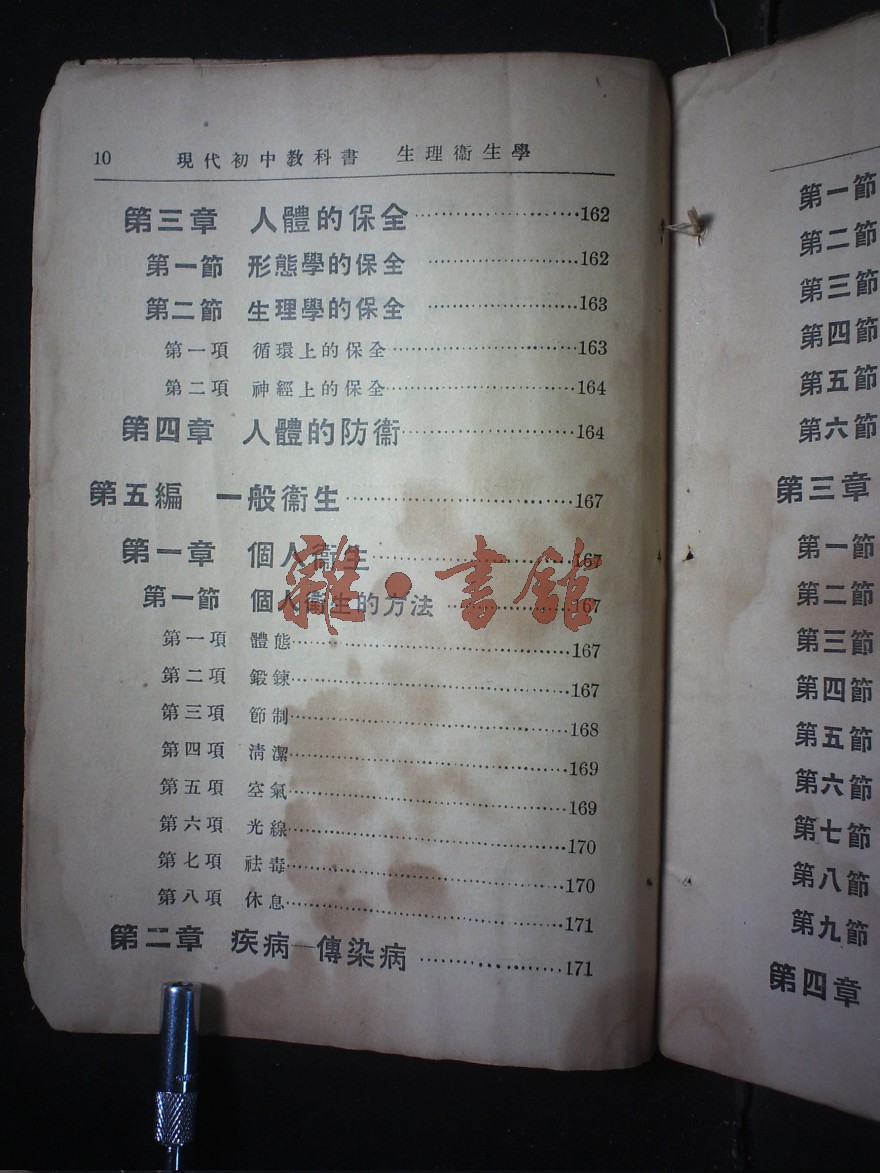 10 現代初中教科書 生理衞生學
第三章 人體的保全························162
第一節 形態學的保全 ························162
第二節 生理學的保全 ························163
第一項 循環上的保全························163
第二項 神經上的保全························164
第四章 人體的防衞························164
第五編 一般衞生························167
第一章 個人衞生························167
第一節 個人衞生的方法 ························167
第一項 體態························167
第二項 鍛鍊························167
第三項 節制························168
第四項 淸潔························169
第五項 空氣························169
第六項 光線························170
第七項 祛毒························170
第八項 休息························171
第二章 疾病—傳染病 ························171
雜·書館
第一節
第二節
第三節
第四節
第五節
第六節
第三章
第一節
第二節
第三節
第四節
第五節
第六節
第七節
第八節
第九節
第四章